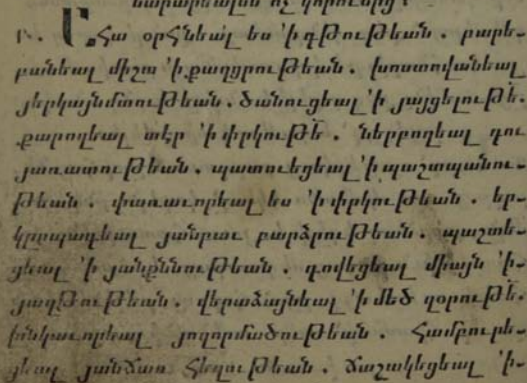 բ. Ահա օրհնեալ ես 'ի գթութեան. բարե-
բանեալ միշտ 'ի քաղցրութեան. խոստովանեալ
յերկայնմտութեան. ծանուցեալ 'ի յայցելութե՛.
քարոզեալ տէր 'ի փրկութե՛. ներբողեալ դու
յառատութեան. պատուեցեալ 'ի պաշտպանու-
թեան. փառաւորեալ ես 'ի փրկութեան. եր-
կրպագեալ յանբաւ բարձրութեան. պաշտե-
ցեալ 'ի յանքննութեան. գովեցեալ միայն 'ի-
յաղթութեան. վերաձայնեալ 'ի մեծ զօրութե՛.
խնկաւորեալ յողորմածութեան. համբուրե-
ցեալ յանճառ հեզութեան. ճաշակեցեալ 'ի-